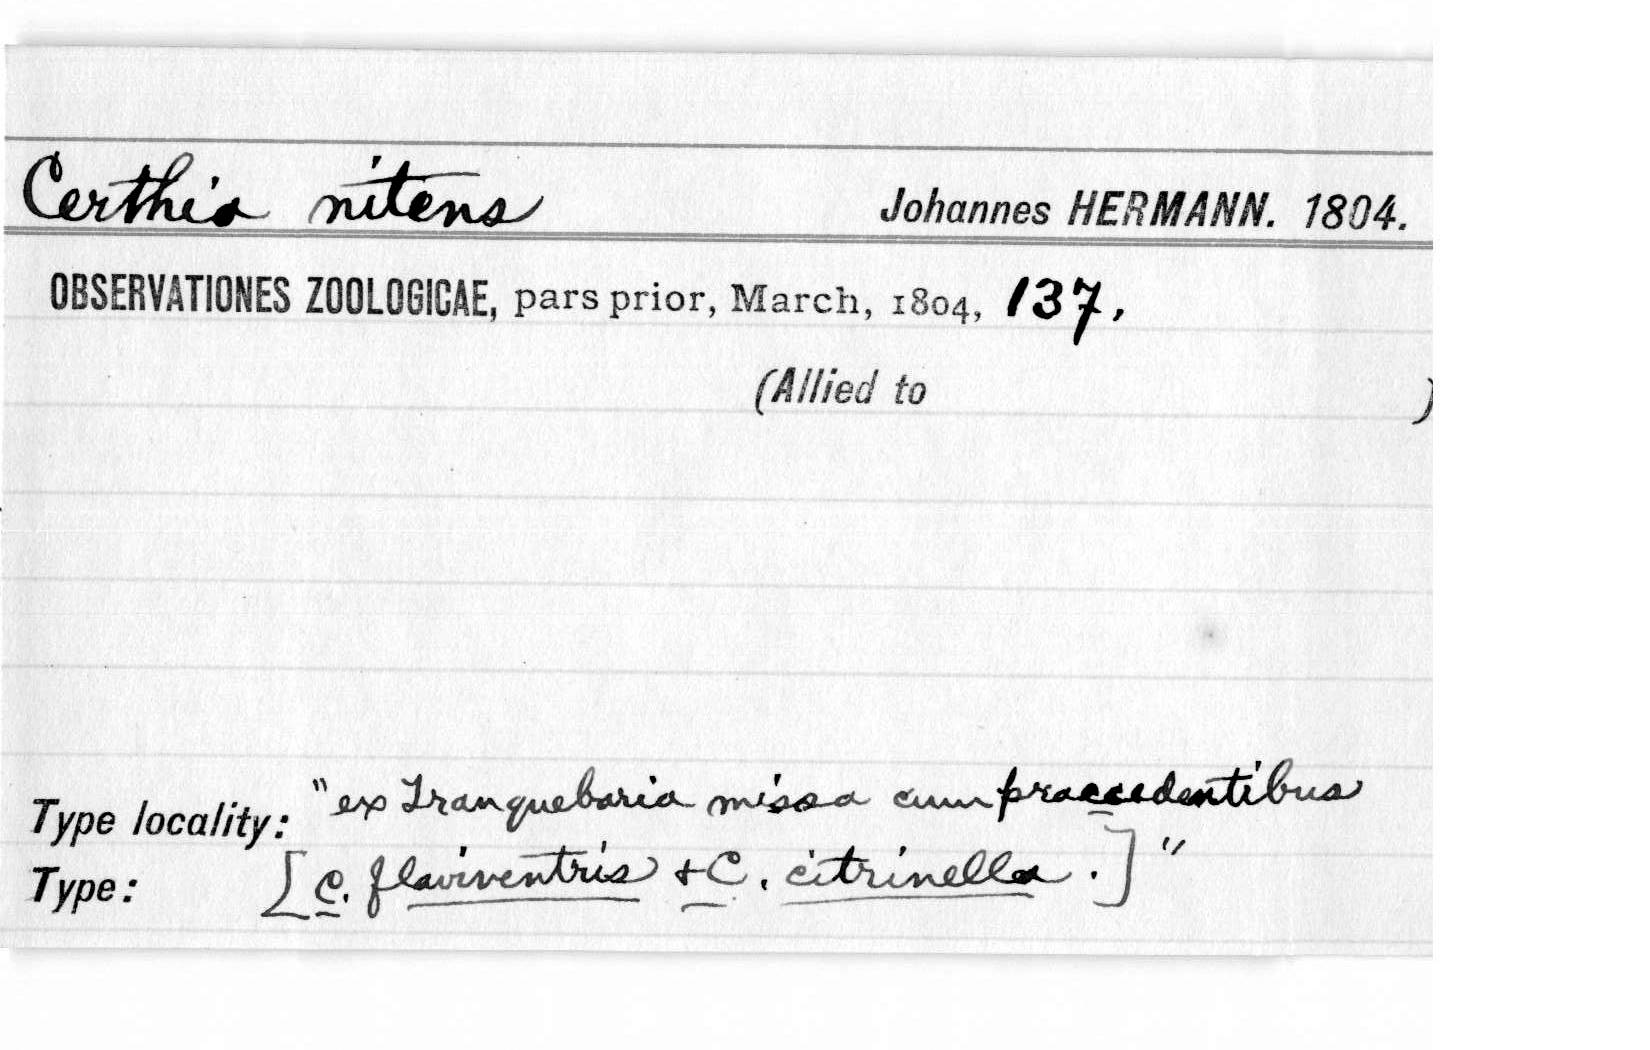 Certhia nitens Johannes HERMANN. 1804.
OBSERVATIONES ZOOLOGICAE, pars prior, March, 1804, 137,
(Allied to )
Type locality: "ex Tranquebaria missa cum praecedentibus
Type: [C. flaviventris + C. citrinella.]"